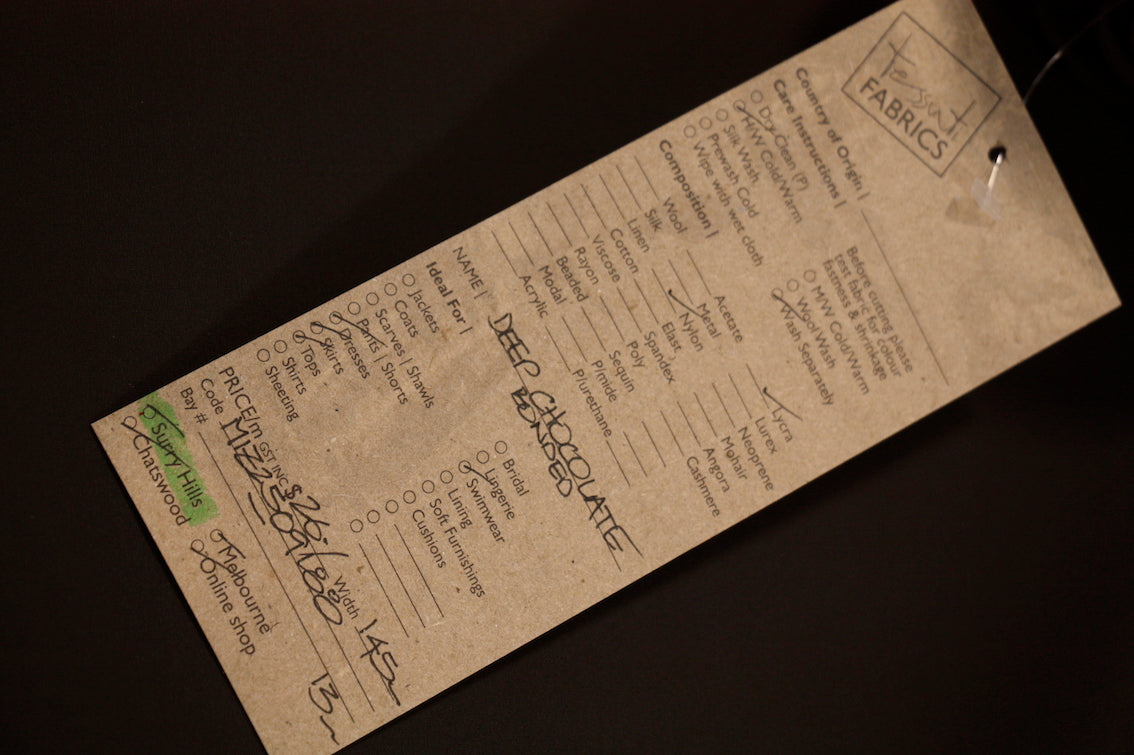 tessuti
FABRICS
Country of Origin |
Care Instructions |
Dry Clean (P)
H/W Cold/Warm
Silk Wash
Prewash Cold
Wipe with wet cloth
Before cutting please
test fabric for colour
fastness & shrinkage
M/W Cold/Warm
Wool Wash
Wash Separately
Composition |
Wool
Silk
Linen
Cotton
Viscose
Rayon
Beaded
Modal
Acrylic
Acetate
Metal
Nylon
Elast
Spandex
Poly
Sequin
P/mide
P/urethane
Lycra
Lurex
Neoprene
Mohair
Angora
Cashmere
NAME | DEEP CHOCOLATE
BONDED
Ideal For |
Jackets
Coats
Scarves | Shawls
Pants | Shorts
Dresses
Skirts
Tops
Shirts
Sheeting
Bridal
Lingerie
Swimwear
Lining
Soft Furnishings
Cushions
PRICE/m GST INC $26/ Width 145
Code
Bay #
13m
Surry Hills
Chatswood
Melbourne
Online shop